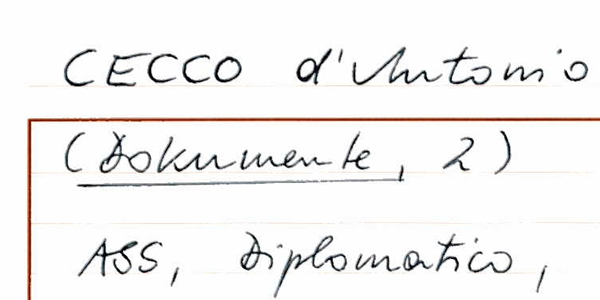 CECCO d'Antonio
(Dokumente, 2)
ASS, Diplomatico,